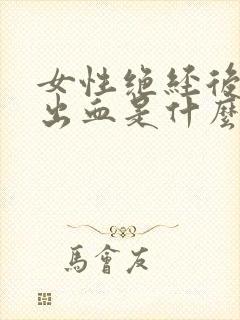 女性绝经後
出血是什麼
馬會友